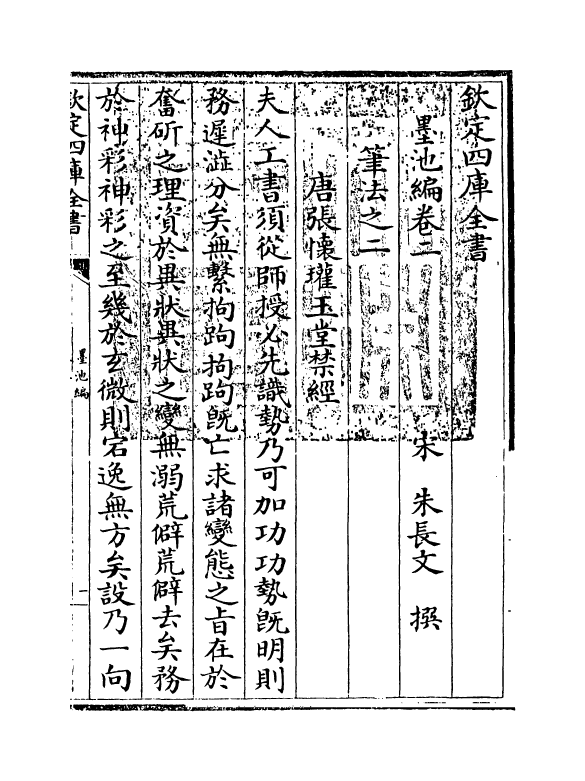 欽定四庫全書
墨池編卷二　　　　宋　朱長文　撰
筆法之二
唐張懷瓘玉堂禁經
夫人工書須從師授必先識勢乃可加功功勢既明則
務遲澁分矣無繫拘跔拘跔既亡求諸變態之旨在於
奮斫之理資於異狀異狀之變無溺荒僻荒僻去矣務
於神彩神彩之至幾於玄微則宕逸無方矣設乃一向
欽定四庫全書
墨池編
一